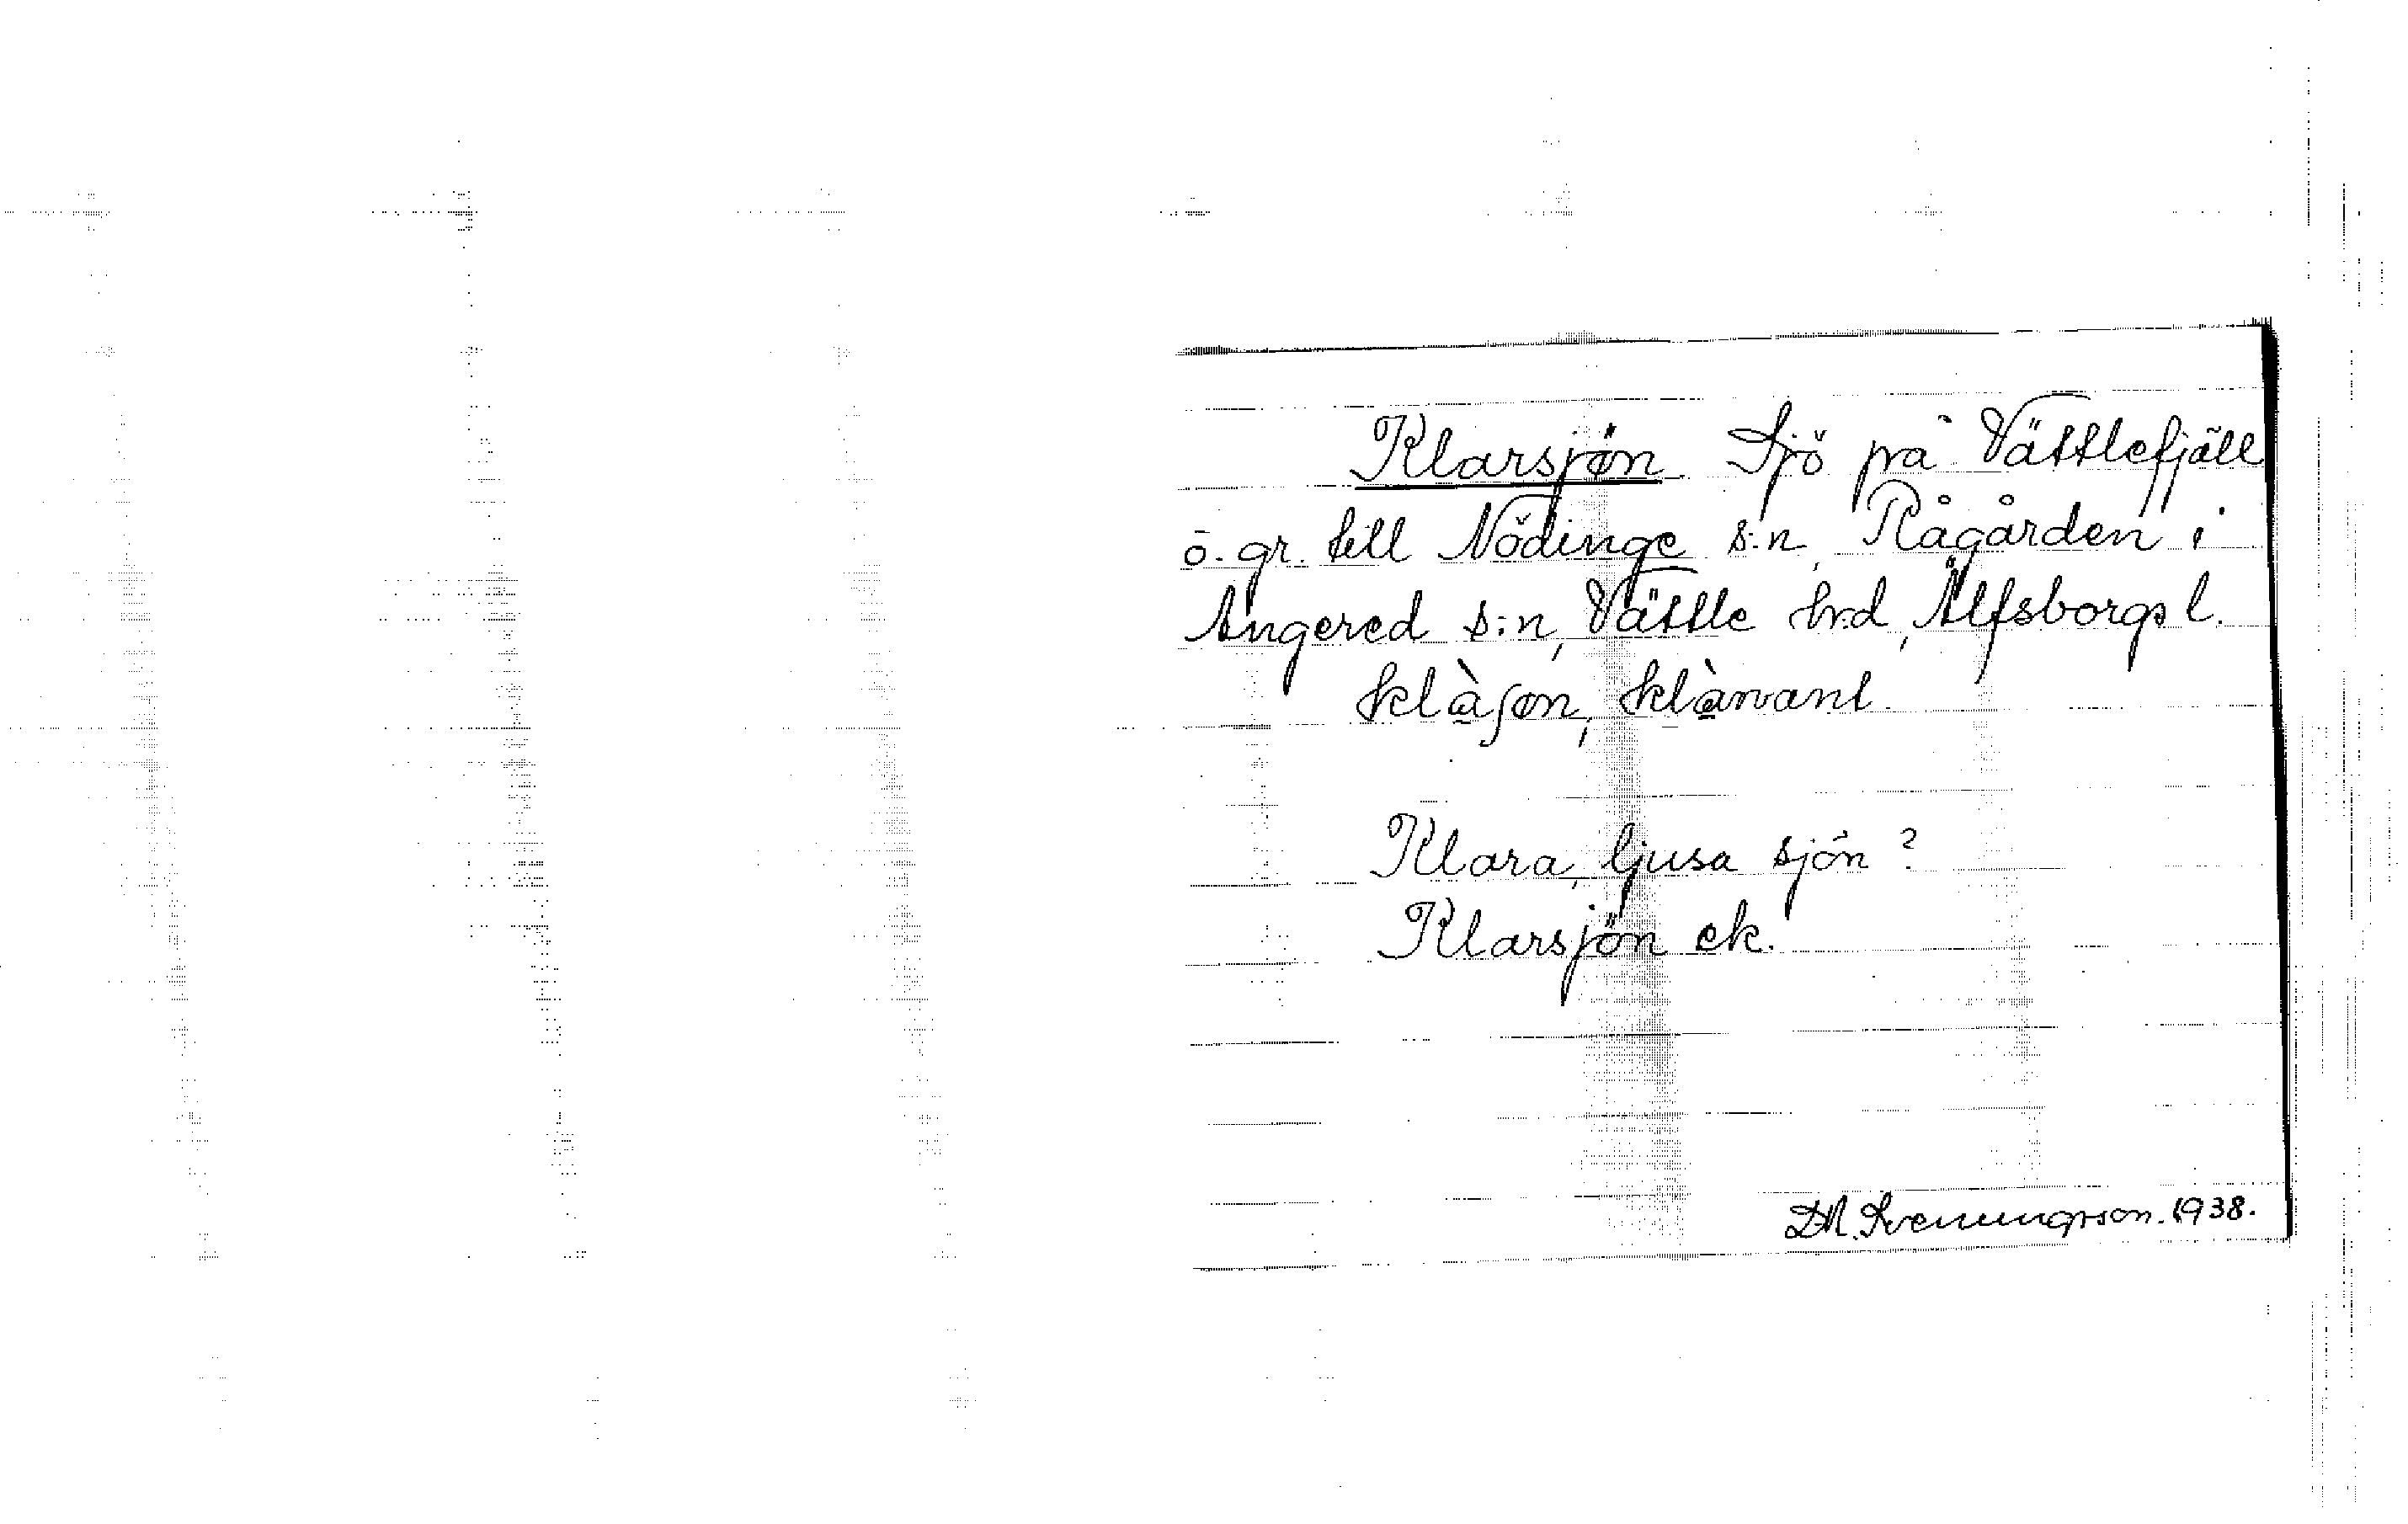 Klarsjön Sjö på Vättlefjäll
ö. gr. till Nödinge s:n, Rågården i
Angered s:n, Vättle hrd, Älfsborgs l.
klàʃøn,
Klara, ljusa sjön?
Klarsjön ek.
D.A. Svenungsson. 1938.